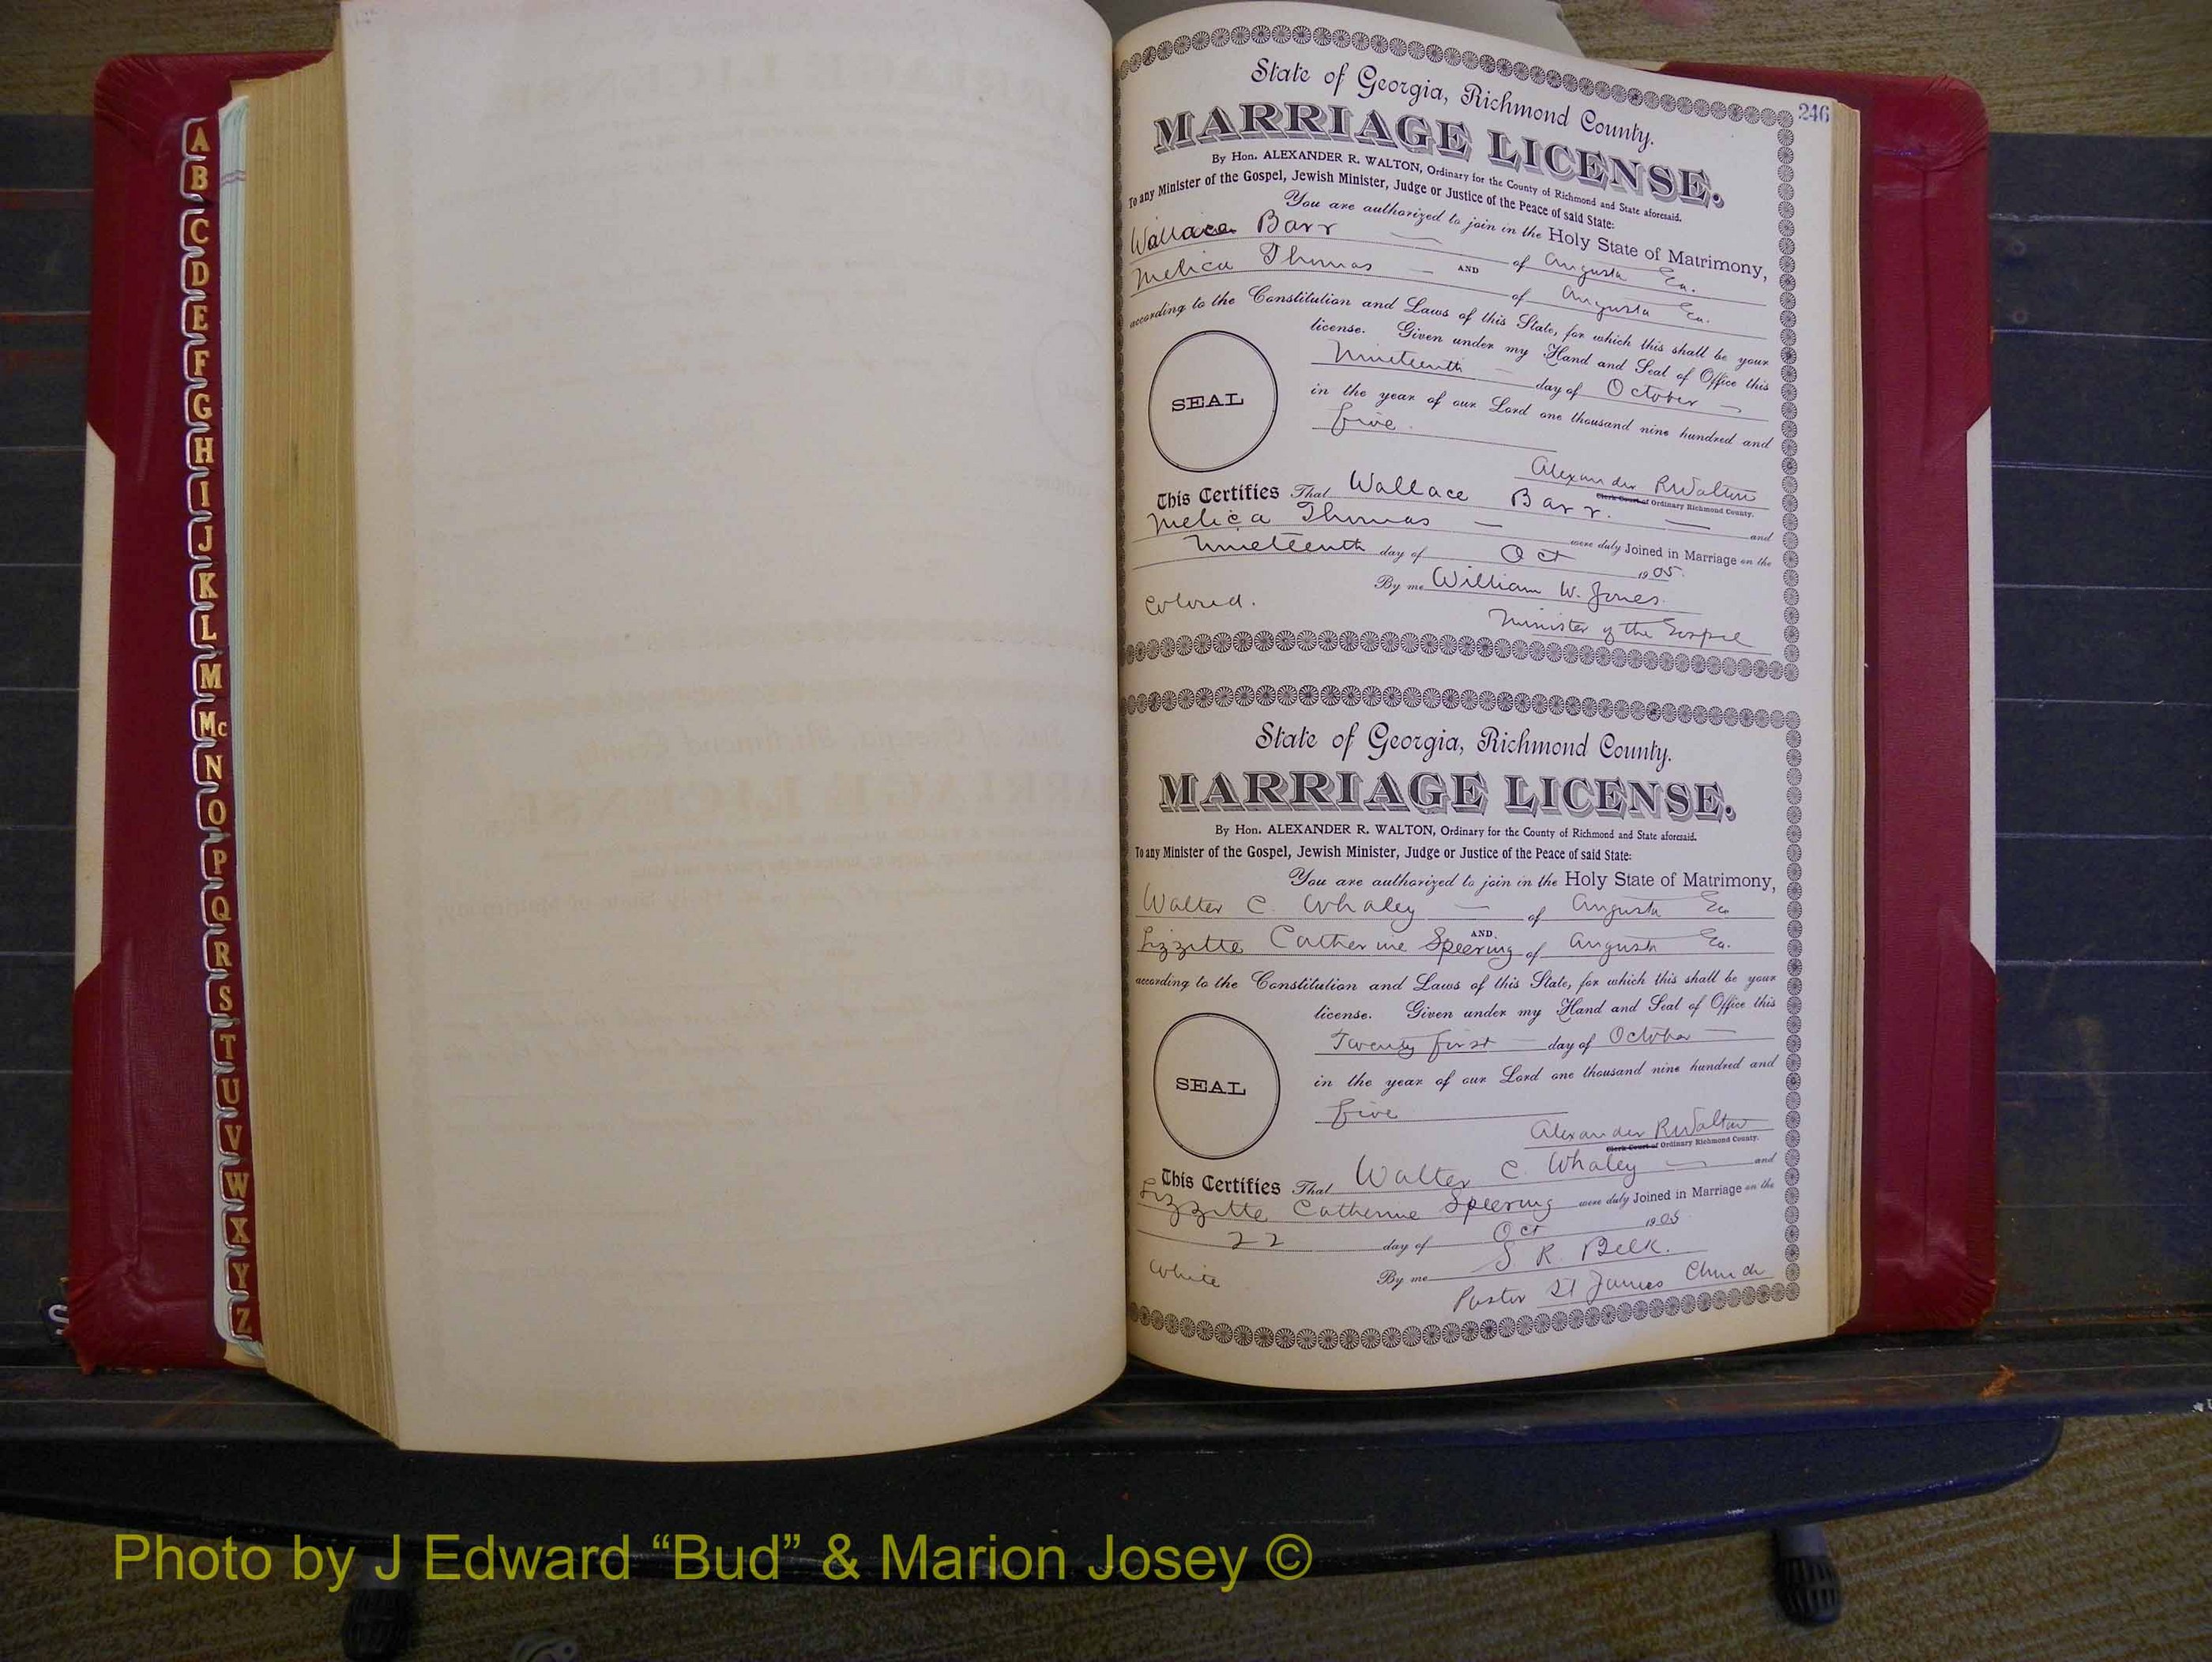 A
B
C
D
E
F
G
H
I
J
K
L
M
Mc
N
O
P
Q
R
S
T
U
V
W
X
Y
Z
246
State of Georgia, Richmond County.
MARRIAGE LICENSE.
By Hon. ALEXANDER R. WALTON, Ordinary for the County of Richmond and State aforesaid.
To any Minister of the Gospel, Jewish Minister, Judge or Justice of the Peace of said State:
You are authorized to join in the Holy State of Matrimony,
Wallace Barr — of Augusta Ga.
AND
Melica Thomas — of Augusta Ga.
according to the Constitution and Laws of this State, for which this shall be your
license. Given under my Hand and Seal of Office this
Nineteenth — day of October —
in the year of our Lord one thousand nine hundred and
five
SEAL
Alexander R Walton
Clerk Court of Ordinary Richmond County.
This Certifies That Wallace Barr. — and
Melica Thomas — were duly Joined in Marriage on the
Nineteenth day of Oct 1905.
By me William W. Jones.
Colored.
Minister of the Gospel
State of Georgia, Richmond County.
MARRIAGE LICENSE.
By Hon. ALEXANDER R. WALTON, Ordinary for the County of Richmond and State aforesaid.
To any Minister of the Gospel, Jewish Minister, Judge or Justice of the Peace of said State:
You are authorized to join in the Holy State of Matrimony,
Walter C. Whaley — of Augusta Ga
AND
Lizzette Catherine Speering of Augusta Ga.
according to the Constitution and Laws of this State, for which this shall be your
license. Given under my Hand and Seal of Office this
Twenty first — day of October —
in the year of our Lord one thousand nine hundred and
five
SEAL
Alexander R Walton
Clerk Court of Ordinary Richmond County.
This Certifies That Walter C. Whaley — and
Lizzette Catherine Speering were duly Joined in Marriage on the
22 day of Oct 1905
By me S R. Belk.
White
Pastor St James Church
Photo by J Edward “Bud” & Marion Josey ©